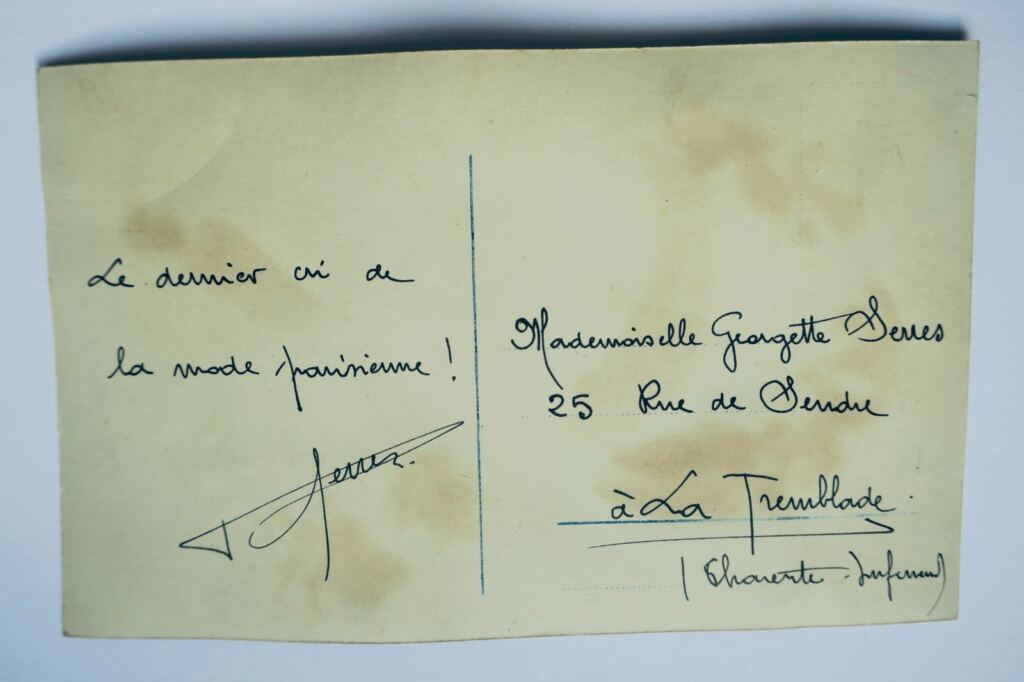 Le dernier cri de
la mode parisienne !
Serres.
Mademoiselle Georgette Serres
25 Rue de Seudre
à La Tremblade.
(Charente-Inférieure)